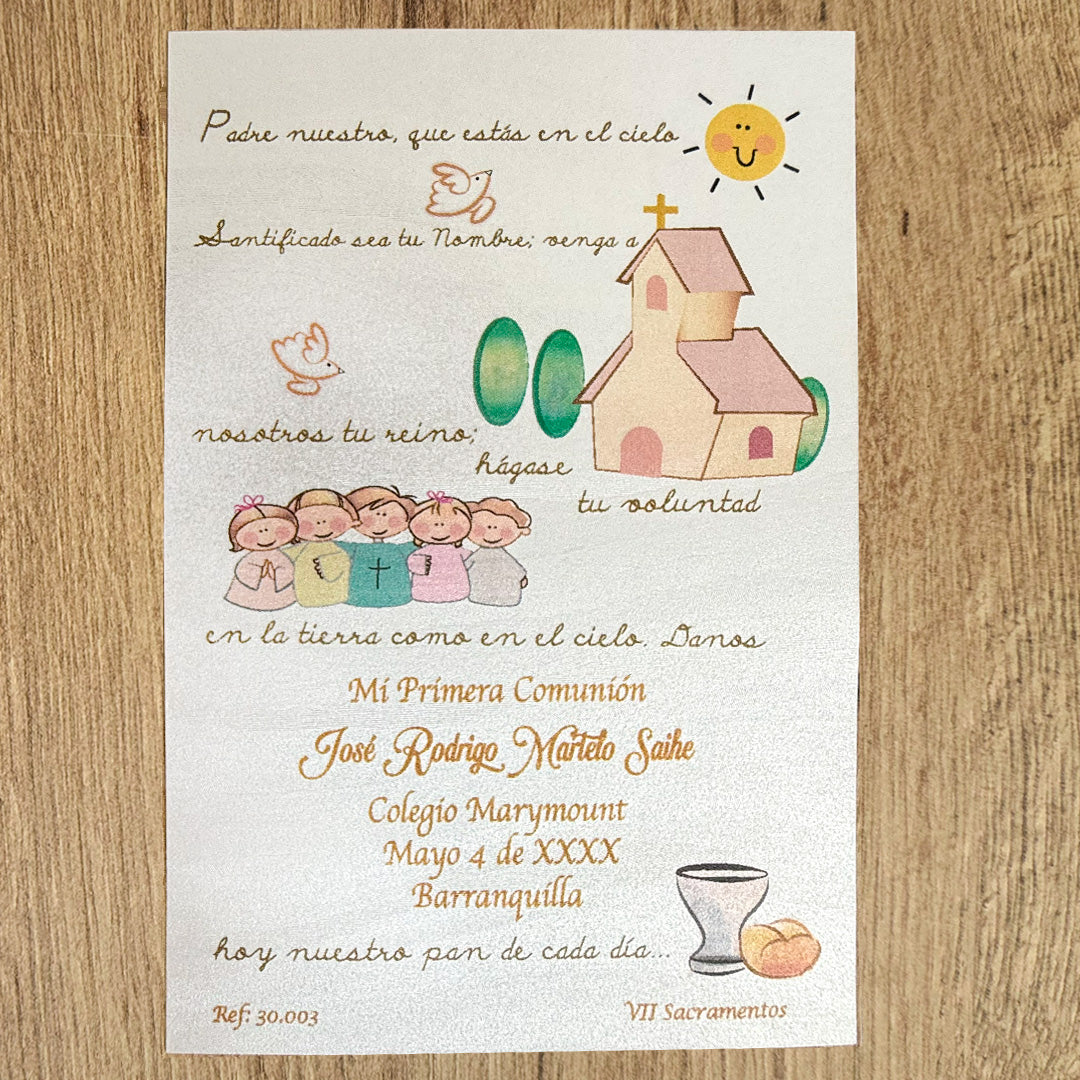 Padre nuestro, que estás en el cielo
Santificado sea tu Nombre; venga a
nosotros tu reino;
hágase
tu voluntad
en la tierra como en el cielo. Danos
Mi Primera Comunión
José Rodrigo Martelo Saihe
Colegio Marymount
Mayo 4 de XXXX
Barranquilla
hoy nuestro pan de cada día...
Ref: 30.003
VII Sacramentos